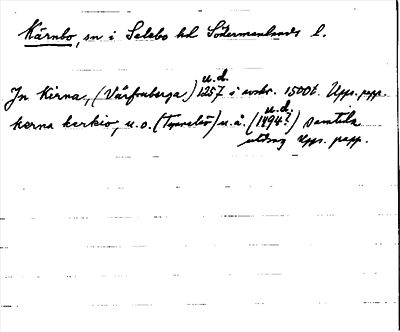 Kärnbo, sn i Selebo hd Södermanlands l.
u.d.
Jn Kirna, (Vårfruberga) 1257 i avskr. 1500t. Upps. papp.
u.d.
kerna kerkio, u.o. (Tynnelsö) u.å. (1494?) samtida
utdrag Upps. papp.